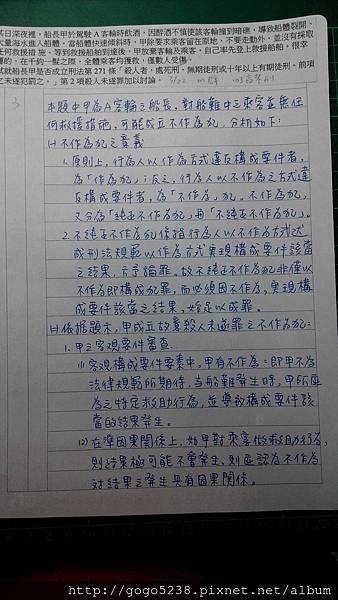 式日深夜裡,船長甲於駕駛A客輪時飲酒,因醉酒不慎使該客輪撞到暗礁,導致船體裂開、
大量海水進入船體。當船體快速傾斜時,甲除要求乘客留在原地,不要走動外,並沒有採取
任何救援措施。等到救援船舶到達後,甲放棄乘客及乘務人員,自己率先登上救援船舶。很幸
運的,在千鈞一髮之際,全體乘客均獲救,僅數人受傷。
試就船長甲是否成立刑法第271條「殺人者,處死刑、無期徒刑或十年以上有期徒刑。前項
之未遂犯罰之。」第2項殺人未遂罪加以討論。
3
本題中甲為A客輪之船長,對船難中之乘客並無任
何救援措施,可能成立不作為犯,分析如下:
㈠不作為犯之意義
1.原則上,行為人以作為方式違反構成要件者,
為「作為犯」;反之,行為人以不作為之方式違
反構成要件者,為「不作為」犯。不作為犯,
又分為「純正不作為犯」與「不純正不作為犯」。
2.不純正不作為犯係指行為人以不作為方式達
成刑法規範以作為方式實現構成要件該當
之結果,方予論罪。故不純正不作為犯非僅以
不作為即構成犯罪,而必須因不作為,實現構
成要件該當之結果,始足以成罪。
㈡依據題示,甲成立故意殺人未遂罪之不作為犯:
1.甲之客觀要件審查
(1)客觀構成要件要素中,甲有不作為:即甲不為
法律規範所期待,當船難發生時,甲所應
為之特定救助行為,並導致構成要件該
當的結果發生。
(2)在準因果關係上,如甲對乘客做救助行為,
則結果極可能不會發生,則應認為不作為
對結果之發生具有因果關係。
http://gogo5238.pixnet.net/album